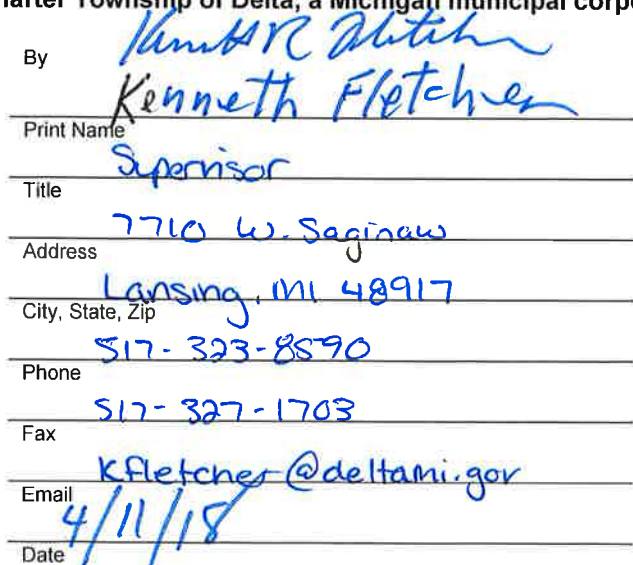 arter Township of Delta, a Michigan municipal corpo
By
Kenneth Fletcher
Print Name
Supervisor
Title
7710 W. Saginaw
Address
Lansing, MI 48917
City, State, Zip
517-323-8590
Phone
517-327-1703
Fax
kfletcher@deltami.gov
Email
4/11/18
Date